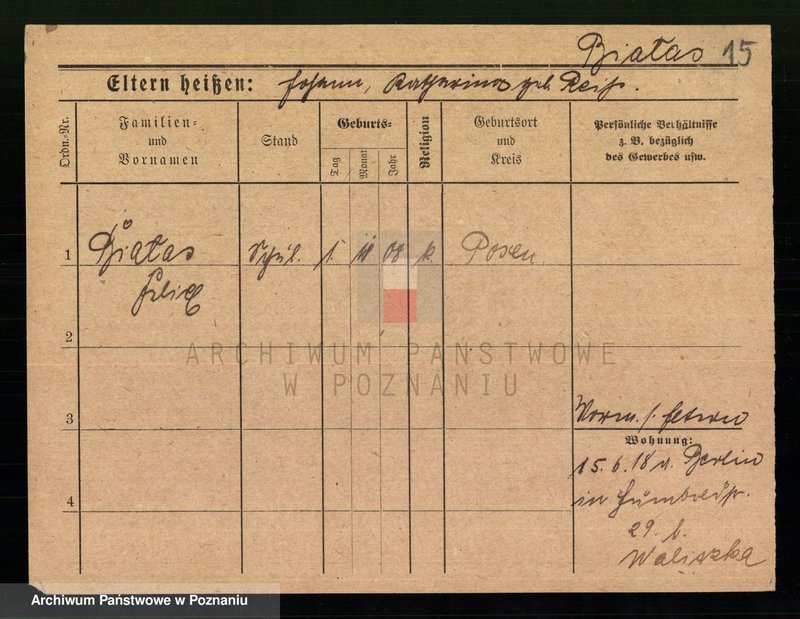 Białas 15
Eltern heißen: Johann, Katharina geb. Reiß.
Ordn.-Nr.
Familien- und Vornamen
Stand
Geburts-
Tag
Monat
Jahr
Religion
Geburtsort und Kreis
Persönliche Verhältnisse
z. B. bezüglich
des Gewerbes usw.
1 Białas Schül. 1. 08 k Posen
Felix
2
ARCHIWUM PAŃSTWOWE
W POZNANIU
3
Vorm. s. Eltern
Wohnung:
15.6.18 v. Berlin
in
29 b.
Waliszka
4
Archiwum Państwowe w Poznaniu